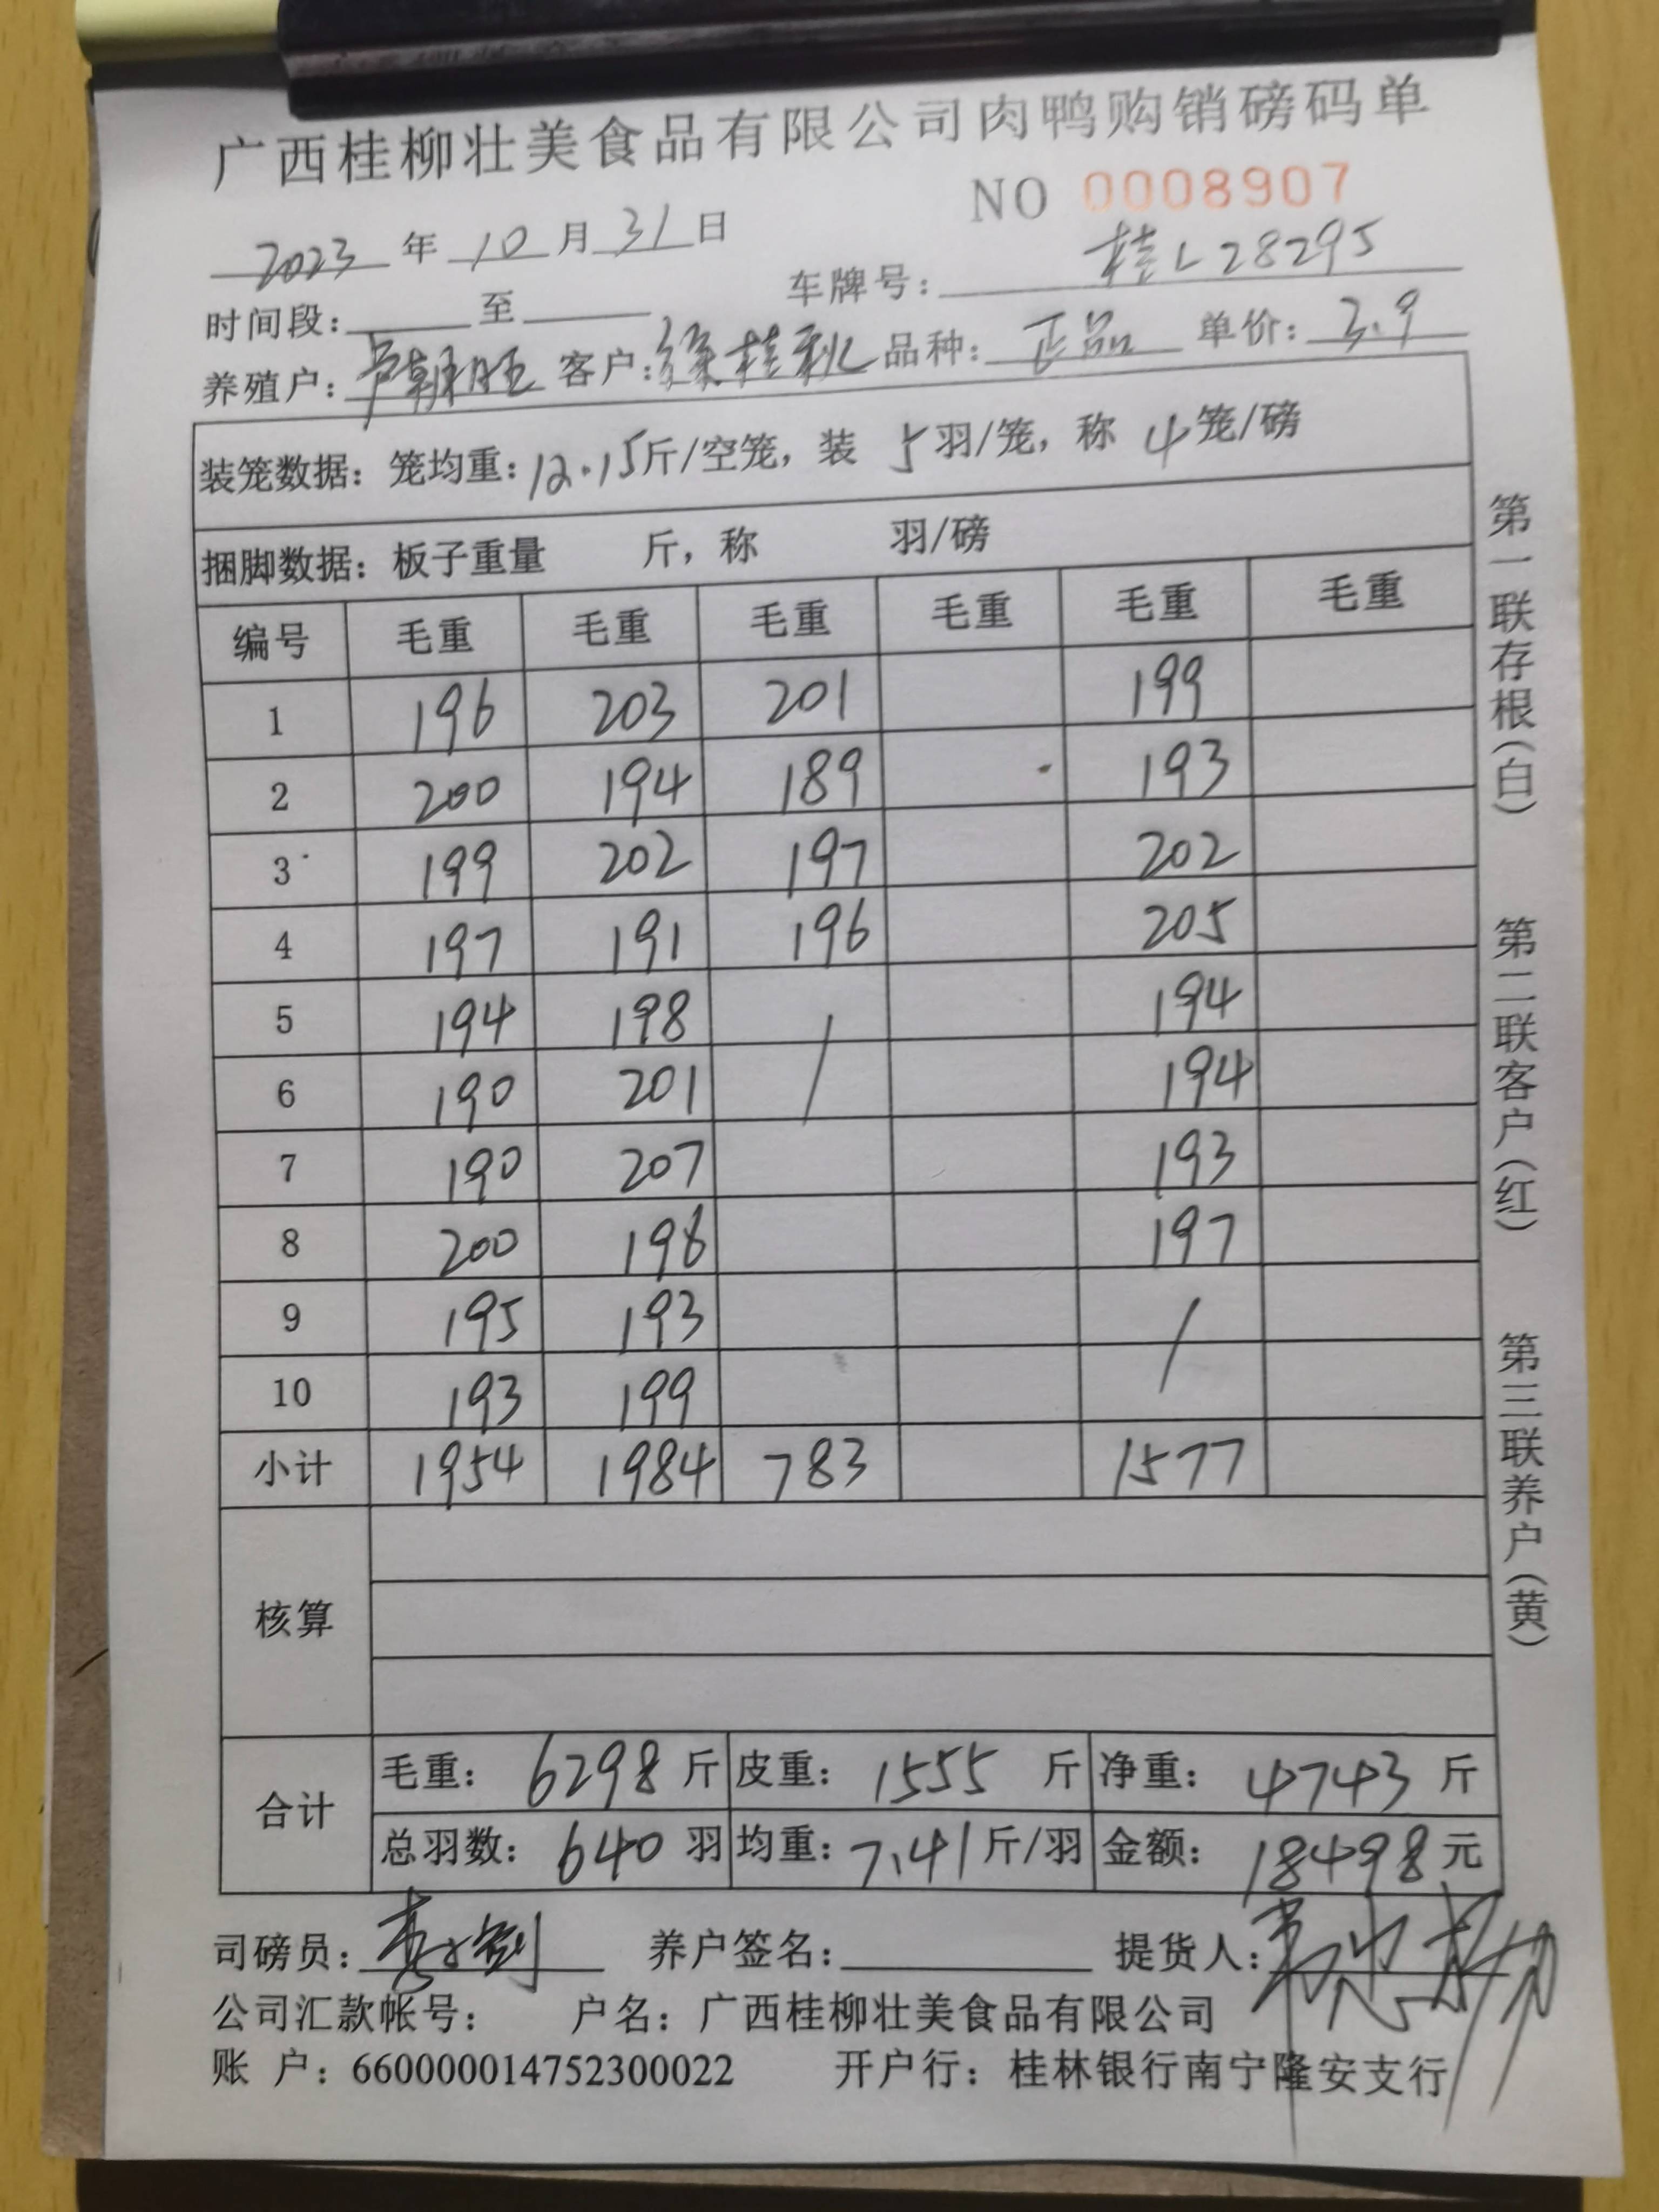 广西桂柳壮美食品有限公司肉鸭购销磅码单
NO 0008907
2023 年 10 月 31 日
车牌号: 桂L28295
时间段: 至
养殖户: 卢朝旺 客户: 徐桂秋 品种: 正品 单价: 3.9
装笼数据: 笼均重: 12.15斤/空笼, 装 5羽/笼, 称 4笼/磅
捆脚数据: 板子重量 斤, 称 羽/磅
编号 毛重 毛重 毛重 毛重 毛重 毛重
1 196 203 201 199
2 200 194 189 193
3 199 202 197 202
4 197 191 196 205
5 194 198 / 194
6 190 201 194
7 190 207 193
8 200 198 197
9 195 193 /
10 193 199
小计 1954 1984 783 1577
核算
合计
毛重: 6298 斤 皮重: 1555 斤 净重: 4743 斤
总羽数: 640 羽 均重: 7.41 斤/羽 金额: 18498 元
司磅员: 养户签名: 提货人:
公司汇款帐号: 户名: 广西桂柳壮美食品有限公司
账 户: 660000014752300022 开户行: 桂林银行南宁隆安支行
第一联存根(白) 第二联客户(红) 第三联养户(黄)